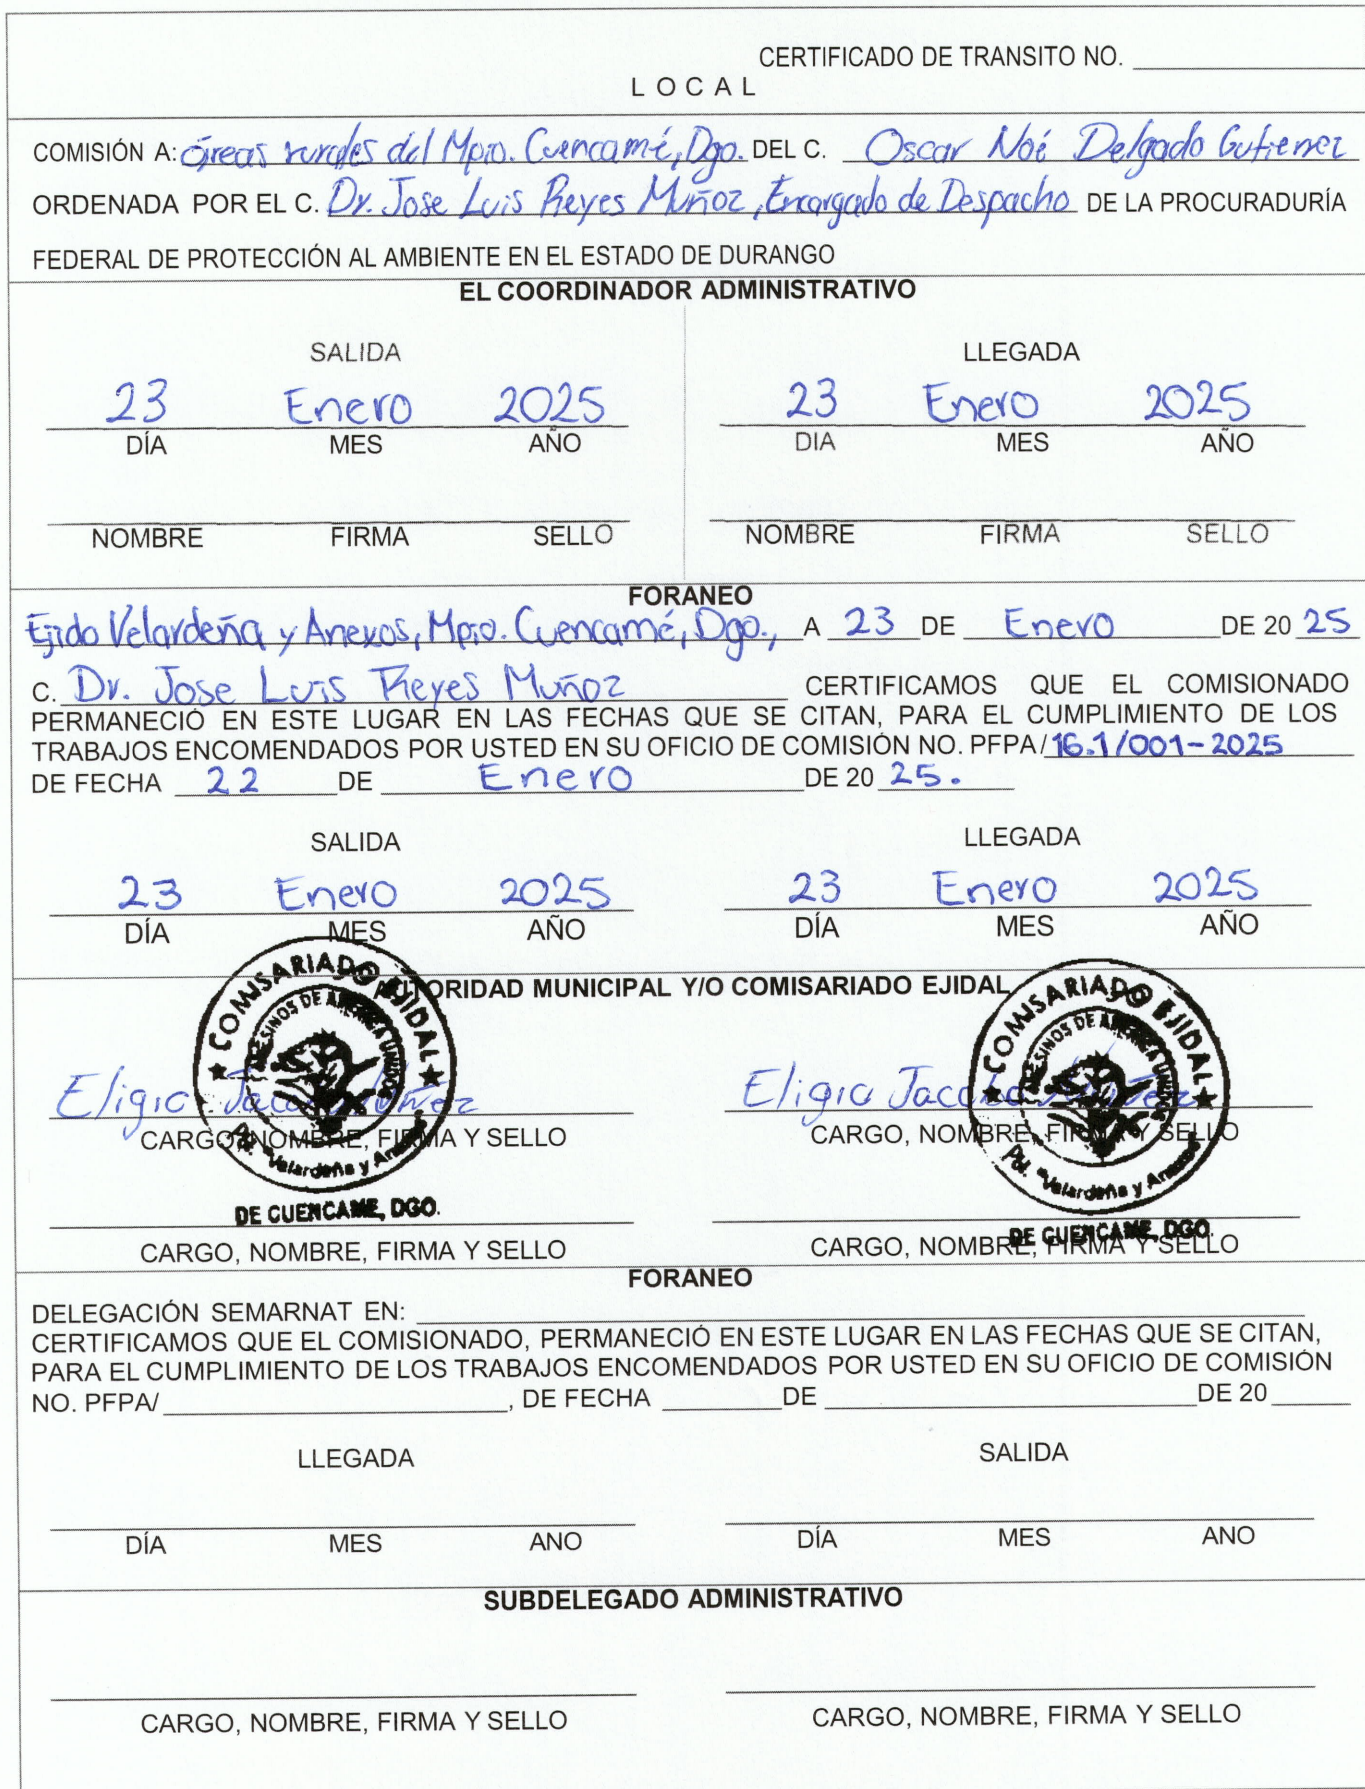 CERTIFICADO DE TRANSITO NO.
LOCAL
COMISIÓN A: áreas rurales del Mpio. Cuencamé, Dgo. DEL C. Oscar Noé Delgado Gutierrez
ORDENADA POR EL C. Dr. Jose Luis Reyes Muñoz, Encargado de Despacho DE LA PROCURADURÍA
FEDERAL DE PROTECCIÓN AL AMBIENTE EN EL ESTADO DE DURANGO
EL COORDINADOR ADMINISTRATIVO
SALIDA LLEGADA
23 Enero 2025 23 Enero 2025
DÍA MES AÑO DIA MES AÑO
NOMBRE FIRMA SELLO NOMBRE FIRMA SELLO
FORANEO
Ejido Velardeña y Anexos, Mpio. Cuencamé, Dgo., A 23 DE Enero DE 20 25
C. Dr. Jose Luis Reyes Muñoz CERTIFICAMOS QUE EL COMISIONADO
PERMANECIÓ EN ESTE LUGAR EN LAS FECHAS QUE SE CITAN, PARA EL CUMPLIMIENTO DE LOS
TRABAJOS ENCOMENDADOS POR USTED EN SU OFICIO DE COMISIÓN NO. PFPA/16.1/001-2025
DE FECHA 22 DE Enero DE 20 25.
SALIDA LLEGADA
23 Enero 2025 23 Enero 2025
DÍA MES AÑO DÍA MES AÑO
AUTORIDAD MUNICIPAL Y/O COMISARIADO EJIDAL
COMISARIADO EJIDAL COMISARIADO EJIDAL
Eligio Jacobo Eligio Jacobo
CARGO, NOMBRE, FIRMA Y SELLO CARGO, NOMBRE, FIRMA Y SELLO
Pol. "Velardeña y Anexos" Pol. "Velardeña y Anexos"
DE CUENCAME, DGO. DE CUENCAME, DGO.
CARGO, NOMBRE, FIRMA Y SELLO CARGO, NOMBRE, FIRMA Y SELLO
FORANEO
DELEGACIÓN SEMARNAT EN:
CERTIFICAMOS QUE EL COMISIONADO, PERMANECIÓ EN ESTE LUGAR EN LAS FECHAS QUE SE CITAN,
PARA EL CUMPLIMIENTO DE LOS TRABAJOS ENCOMENDADOS POR USTED EN SU OFICIO DE COMISIÓN
NO. PFPA/ , DE FECHA DE DE 20
LLEGADA SALIDA
DÍA MES ANO DÍA MES ANO
SUBDELEGADO ADMINISTRATIVO
CARGO, NOMBRE, FIRMA Y SELLO CARGO, NOMBRE, FIRMA Y SELLO